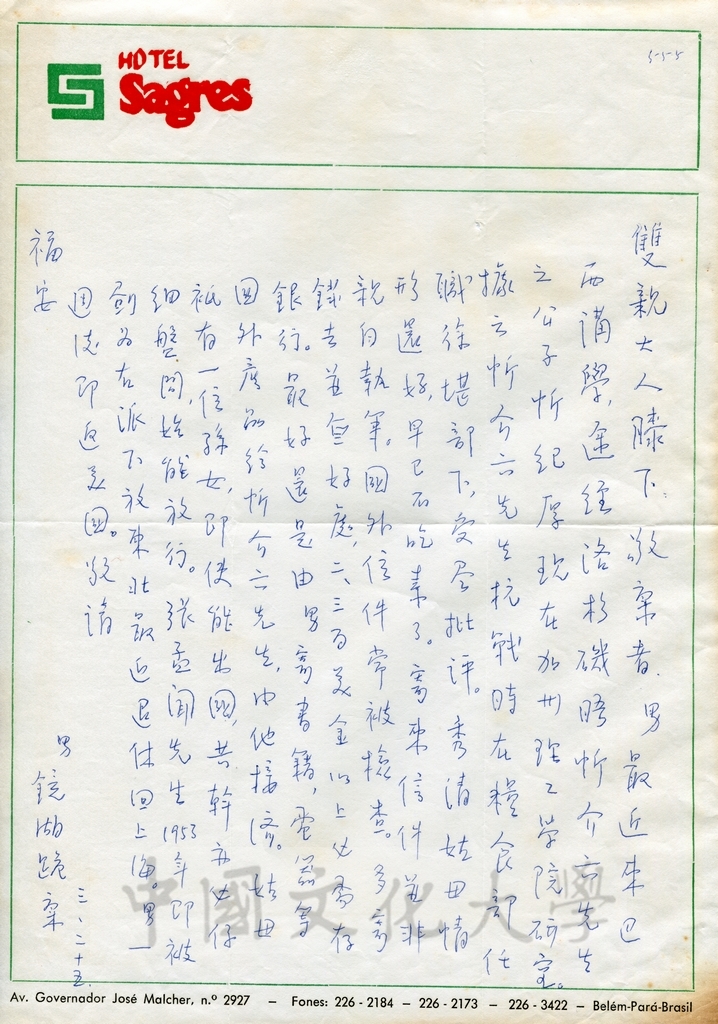 HOTEL
Sagres
5-5-5
雙親大人膝下:敬稟者.男最近來巴
西講學,途經洛杉磯晤忻介六先生
之公子忻紀厚現在加州理工學院研究。
據云忻介六先生抗戰時在糧食部任
職徐堪部下,受盡批評。秀清姑母情
形還好,早已不吃素了。寄來信件並非
親自執筆。國外信件常被檢查。多寄
錢去並無好處,二、三百美金以上必需存
銀行。最好還是由男寄書籍,電器等
國外產品給忻介六先生,由他接濟。姑母
祇有一位孫女,即使能出國,共幹亦必仔
細盤問,始能放行。張孟聞先生1953年即被
劃為右派下放東北最近退休回上海。男一
週後即返美國。敬請
福安
男
鏡湖跪稟
三、二十五.
中國文化大學
Av. Governador José Malcher, n.º 2927 — Fones: 226-2184 — 226-2173 — 226-3422 — Belém-Pará-Brasil